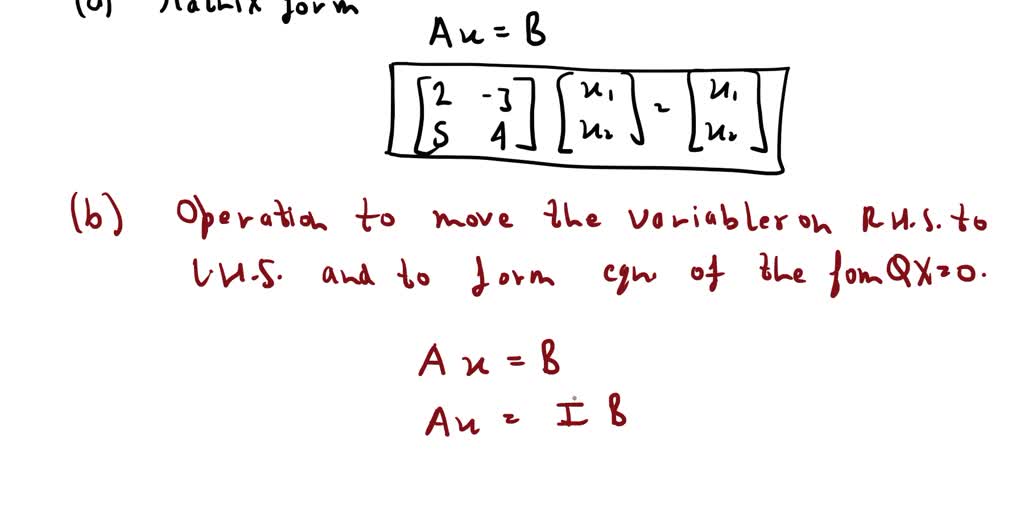 (a) Matrix form
Ax = B
[2 -3] [x₁] = [x₁]
[5 4] [x₂] [x₂]
(b) Operation to move the variabler on R.H.S. to
L.H.S. and to form eqn of the fom QX=0.
Ax = B
Ax = I B